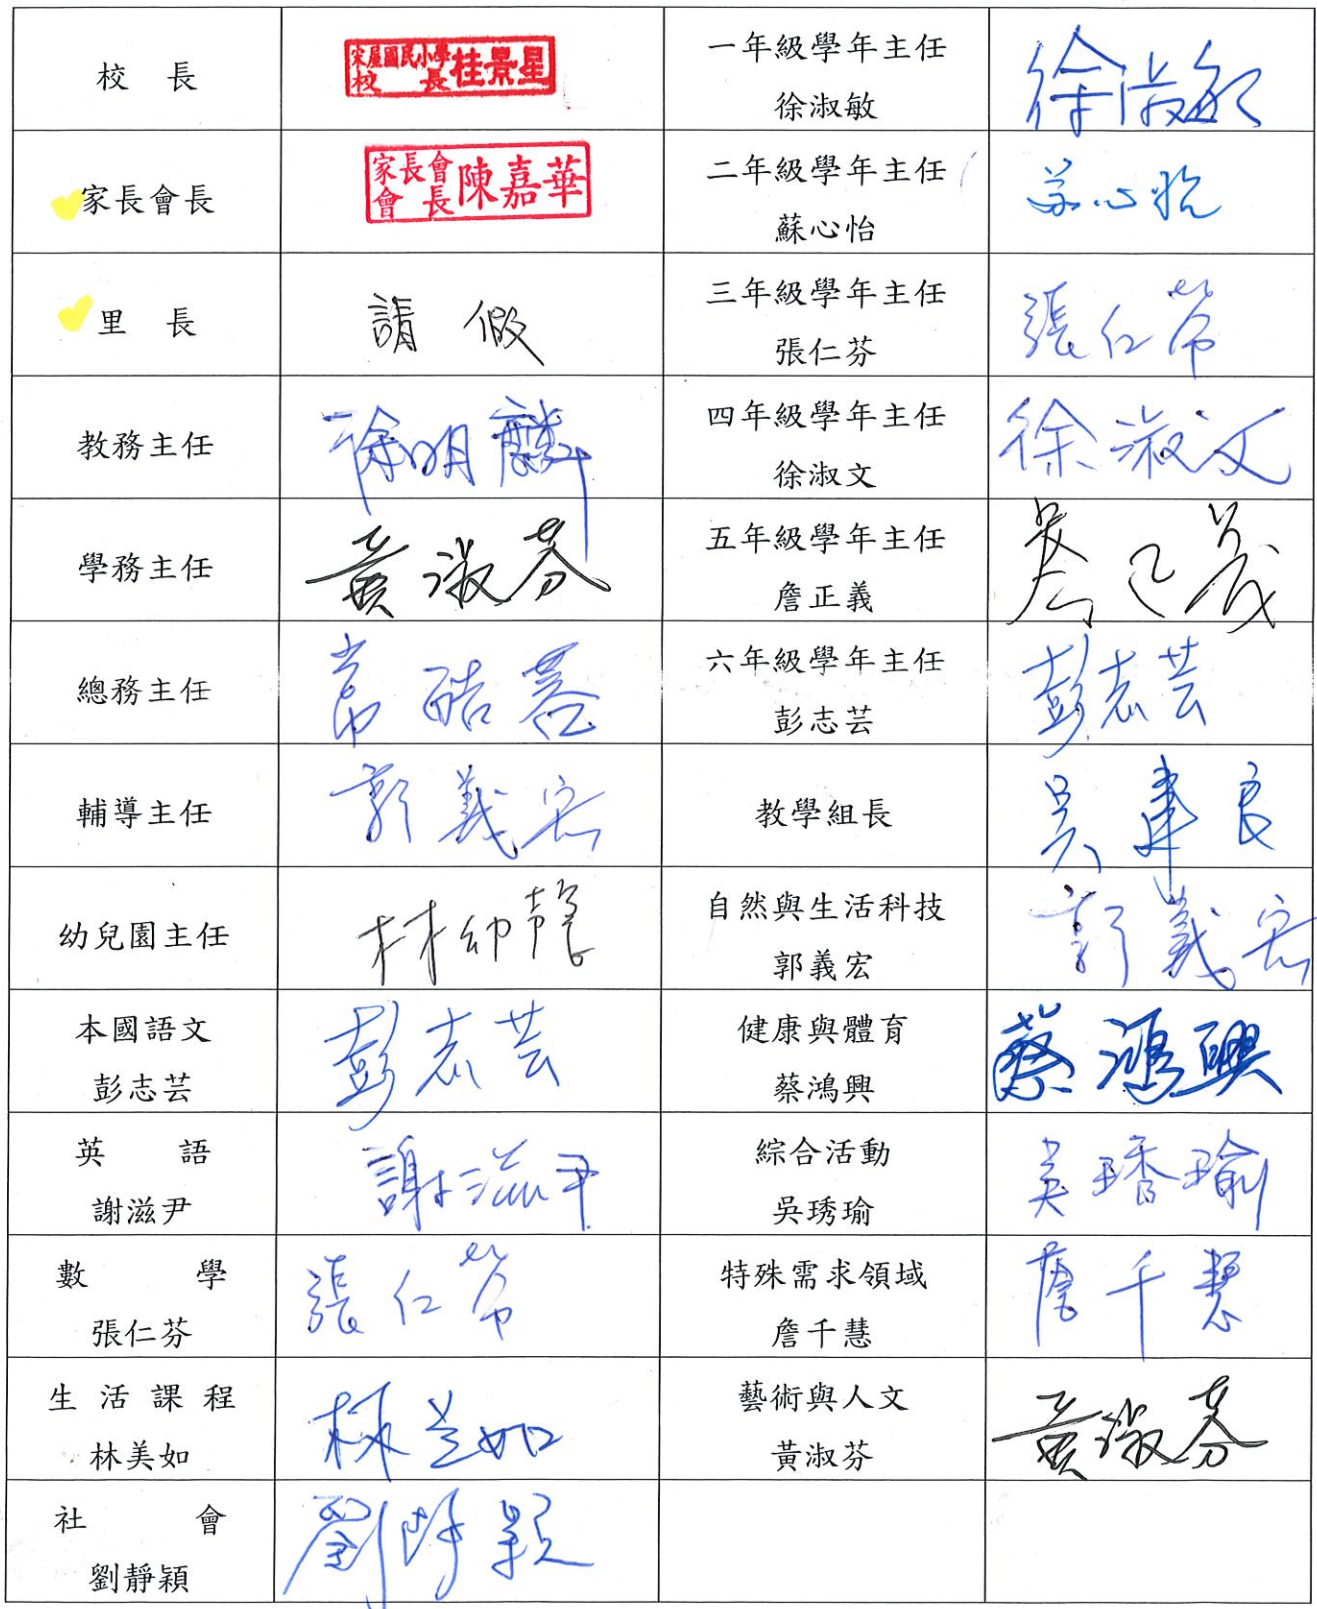 校 長
宋屋國民小學
校 長 桂景星
一年級學年主任
徐淑敏
徐淑敏
家長會長
家長會
會 長 陳嘉華
二年級學年主任
蘇心怡
苏心怡
里 長
請 假
三年級學年主任
張仁芬
張仁芬
教務主任
徐明麟
四年級學年主任
徐淑文
徐淑文
學務主任
黃淑芬
五年級學年主任
詹正義
詹正義
總務主任
六年級學年主任
彭志芸
彭志芸
輔導主任
郭義宏
教學組長
幼兒園主任
自然與生活科技
郭義宏
郭義宏
本國語文
彭志芸
彭志芸
健康與體育
蔡鴻興
蔡鴻興
英 語
謝滋尹
謝滋尹
綜合活動
吳琇瑜
吳琇瑜
數 學
張仁芬
張仁芬
特殊需求領域
詹千慧
詹千慧
生 活 課 程
林美如
林美如
藝術與人文
黃淑芬
黃淑芬
社 會
劉靜穎
劉靜穎